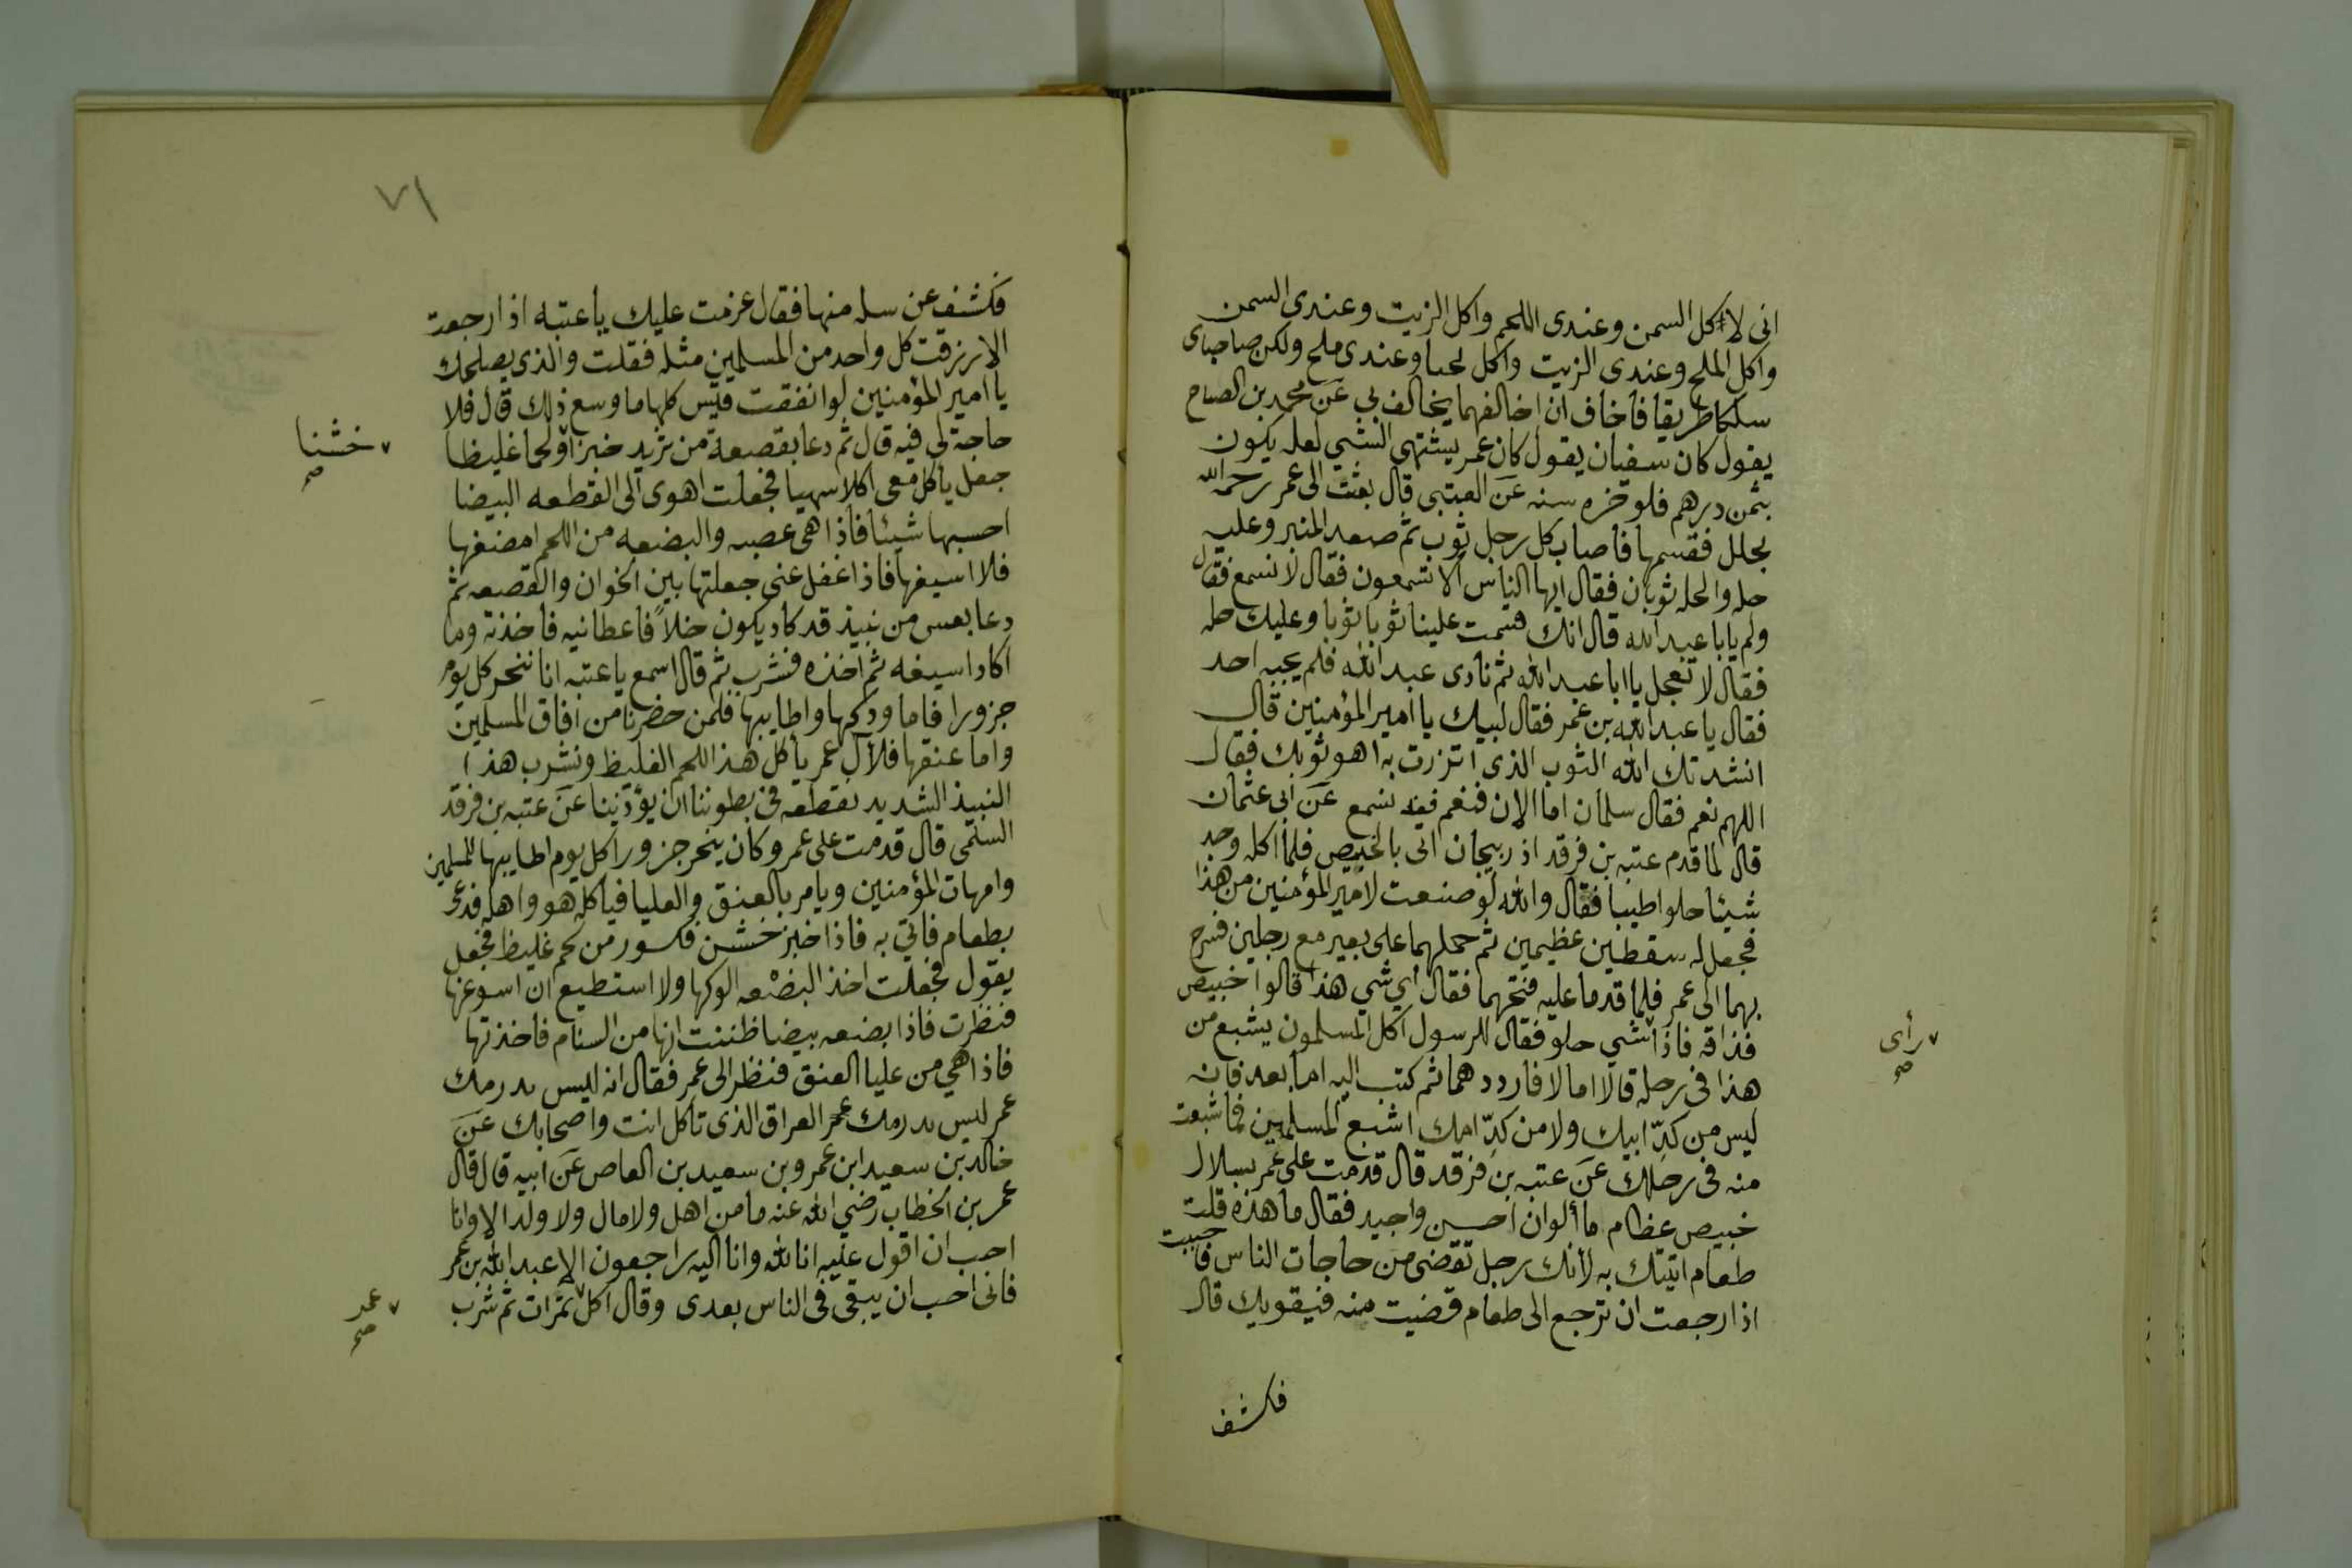 انى لا آكل السمن وعندى اللحم واكل الزيت وعندى السمن
واكل الملح وعندى الزيت واكل لحما وعندى ملح ولكن صاحباى
سلكا طريقا فاخاف ان اخالفهما يخالف بي عن محمد بن الصباح
يقول كان سفيان يقول كان عمر يشتهى الشي لعله يكون
بثمن درهم فلوخره سنه عن العتبى قال بعثت الى عمر رحمه الله
بحلل فقسمها فاصاب كل رجل ثوب ثم صعد المنبر وعليه
حله والحله ثوبان فقال ايها الناس الا تسمعون فقال لا نسمع فقال
ولم يابا عبد الله قال انك قسمت علينا ثوبا ثوبا وعليك حله
فقال لا تعجل يا ابا عبد الله ثم نادى عبد الله فلم يجبه احد
فقال يا عبد الله بن عمر فقال لبيك يا امير المؤمنين قال
انشدتك الله الثوب الذى اتزرت به اهو ثوبك فقال
اللهم نعم فقال سلمان اما الان فنعم فقد نسمع عن ابى عثمان
قال لما قدم عتبه بن فرقد اذربيجان اتى بالخبيص فلما اكله وجد
شيئا حلوا طيبا فقال والله لو صنعت لامير المؤمنين من هذا
فجعل له سقطين عظيمين ثم حملهما على بعير مع رجلين فسرح
بهما الى عمر فلما قدما عليه فتحهما فقال أي شي هذا قالوا خبيص
فذاقه فاذا شي حلو فقال للرسول اكل المسلمون يشبع من
رأى صح
هذا فى رحله قالا اما لا فارددهما ثم كتب اليه اما بعد فانه
ليس من كدّ ابيك ولا من كدّ امك اشبع المسلمين مما شبعت
منه فى رحلك عن عتبه بن فرقد قال قدمت على عمر بسلال
خبيص عظام ما ألوان احسن واجيد فقال ما هذه قلت
طعام اتيتك به لأنك رجل تقضى من حاجات الناس فاحببت
اذا رجعت ان ترجع الى طعام قضيت منه فيقويك قال
فكشف
٧١
فكشف عن سله منها فقال عزمت عليك يا عتبه اذا رجعت
الا رزقت كل واحد من المسلمين مثله فقلت والذى يصلحك
يا امير المؤمنين لو انفقت قيس كلها ما وسع ذلك قال فلا
حاجة لي فيه قال ثم دعا بقصعة من ثريد خبزا ولحما غليظا
خشنا صح
جعل يأكل معى اكلا سهيا فجعلت اهوى الى القطعه البيضا
احسبها شيئا فاذا هى عصبه والبضعه من اللحم امضغها
فلا اسيغها فاذا غفل عنى جعلتها بين الخوان والقصعه ثم
دعا بعس من نبيذ قد كاد يكون خلاً فاعطانيه فاخذته وما
اكاد اسيغه ثم اخذه فشرب ثم قال اسمع يا عتبه انا ننحر كل يوم
جزورا فاما ودكها واطايبها فلمن حضرنا من افاق المسلمين
واما عنقها فلآل عمر يأكل هذا اللحم الغليظ ونشرب هذا
النبيذ الشديد نقطعه فى بطوننا ان يؤذينا عن عتبه بن فرقد
السلمى قال قدمت على عمر وكان ينحر جزورا كل يوم اطايبها للمسلمين
وامهات المؤمنين ويامر بالعنق والعليا فياكله هو واهله فدعى
بطعام فاتي به فاذا خبز خشن فكسور من لحم غليظ فجعل
يقول فجعلت اخذ البضعه الوكها ولا استطيع ان اسوغها
فنظرت فاذا بضعه بيضا ظننت انها من السنام فاخذتها
فاذا هي من عليا العنق فنظر الى عمر فقال انه ليس بدرمك
عمر ليس بدرمك عمر العراق الذى تاكل انت واصحابك عن
خالد بن سعيد ابن عمرو بن سعيد بن العاص عن ابيه قال قال
عمر بن الخطاب رضي الله عنه ما من اهل ولا مال ولا ولد الا وانا
احب ان اقول عليه انا لله وانا اليه راجعون الا عبد الله بن عمر
فانى احب ان يبقى فى الناس بعدى وقال اكل تمرات ثم شرب
عمر صح